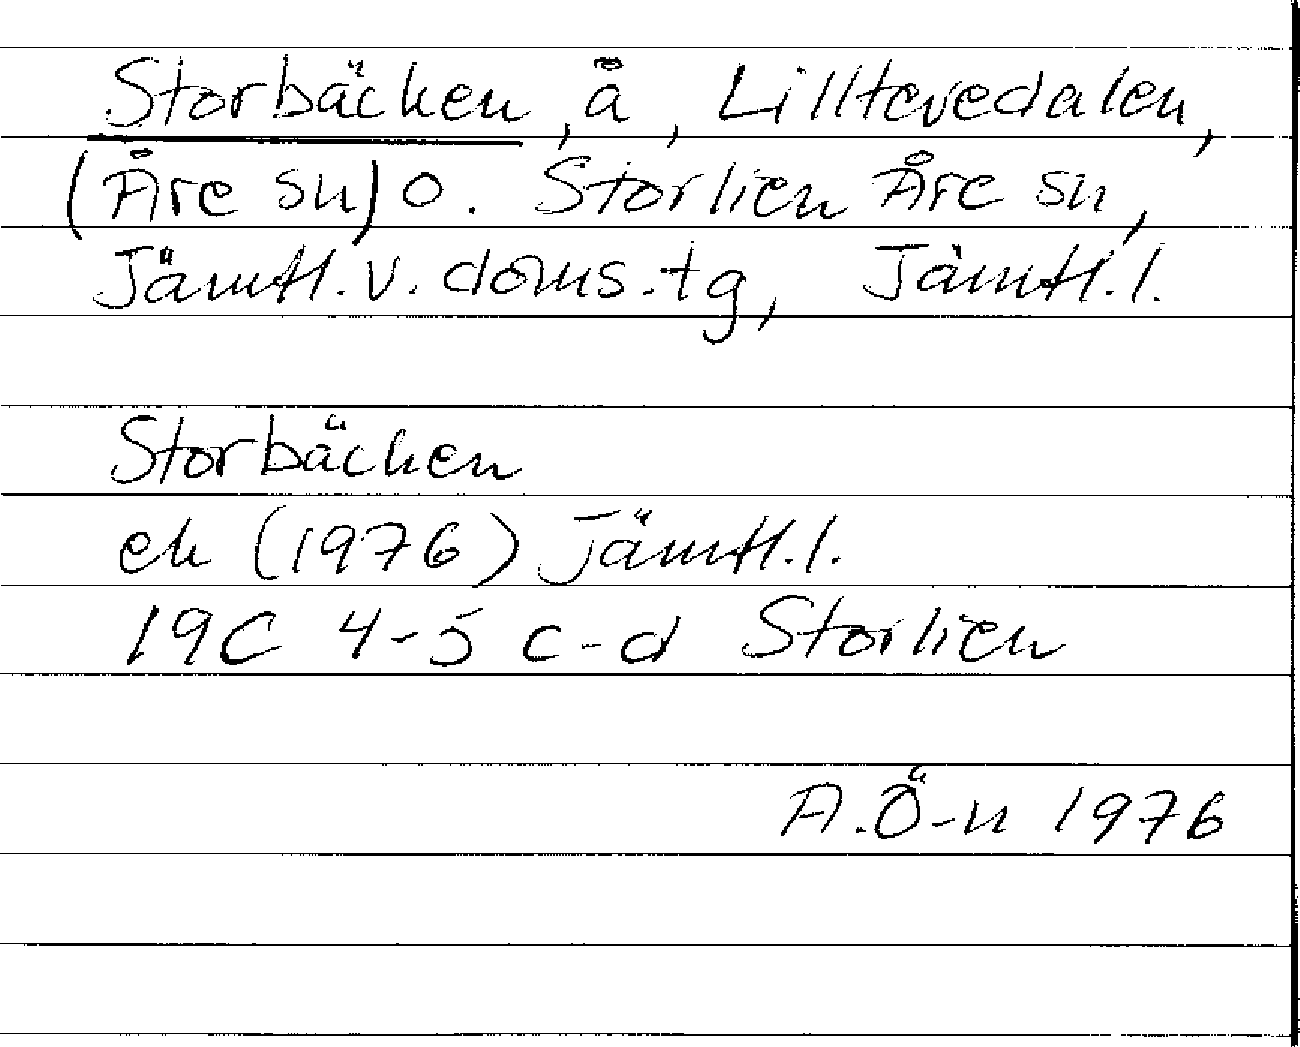 Storbäcken, å, Lilltevedalen,
(Åre sn) o. Storlien Åre sn,
Jämtl. v. doms. tg, Jämtl. l.
Storbäcken
ek (1976) Jämtl. l.
19C 4-5 c-d Storlien
A. Ö-n 1976